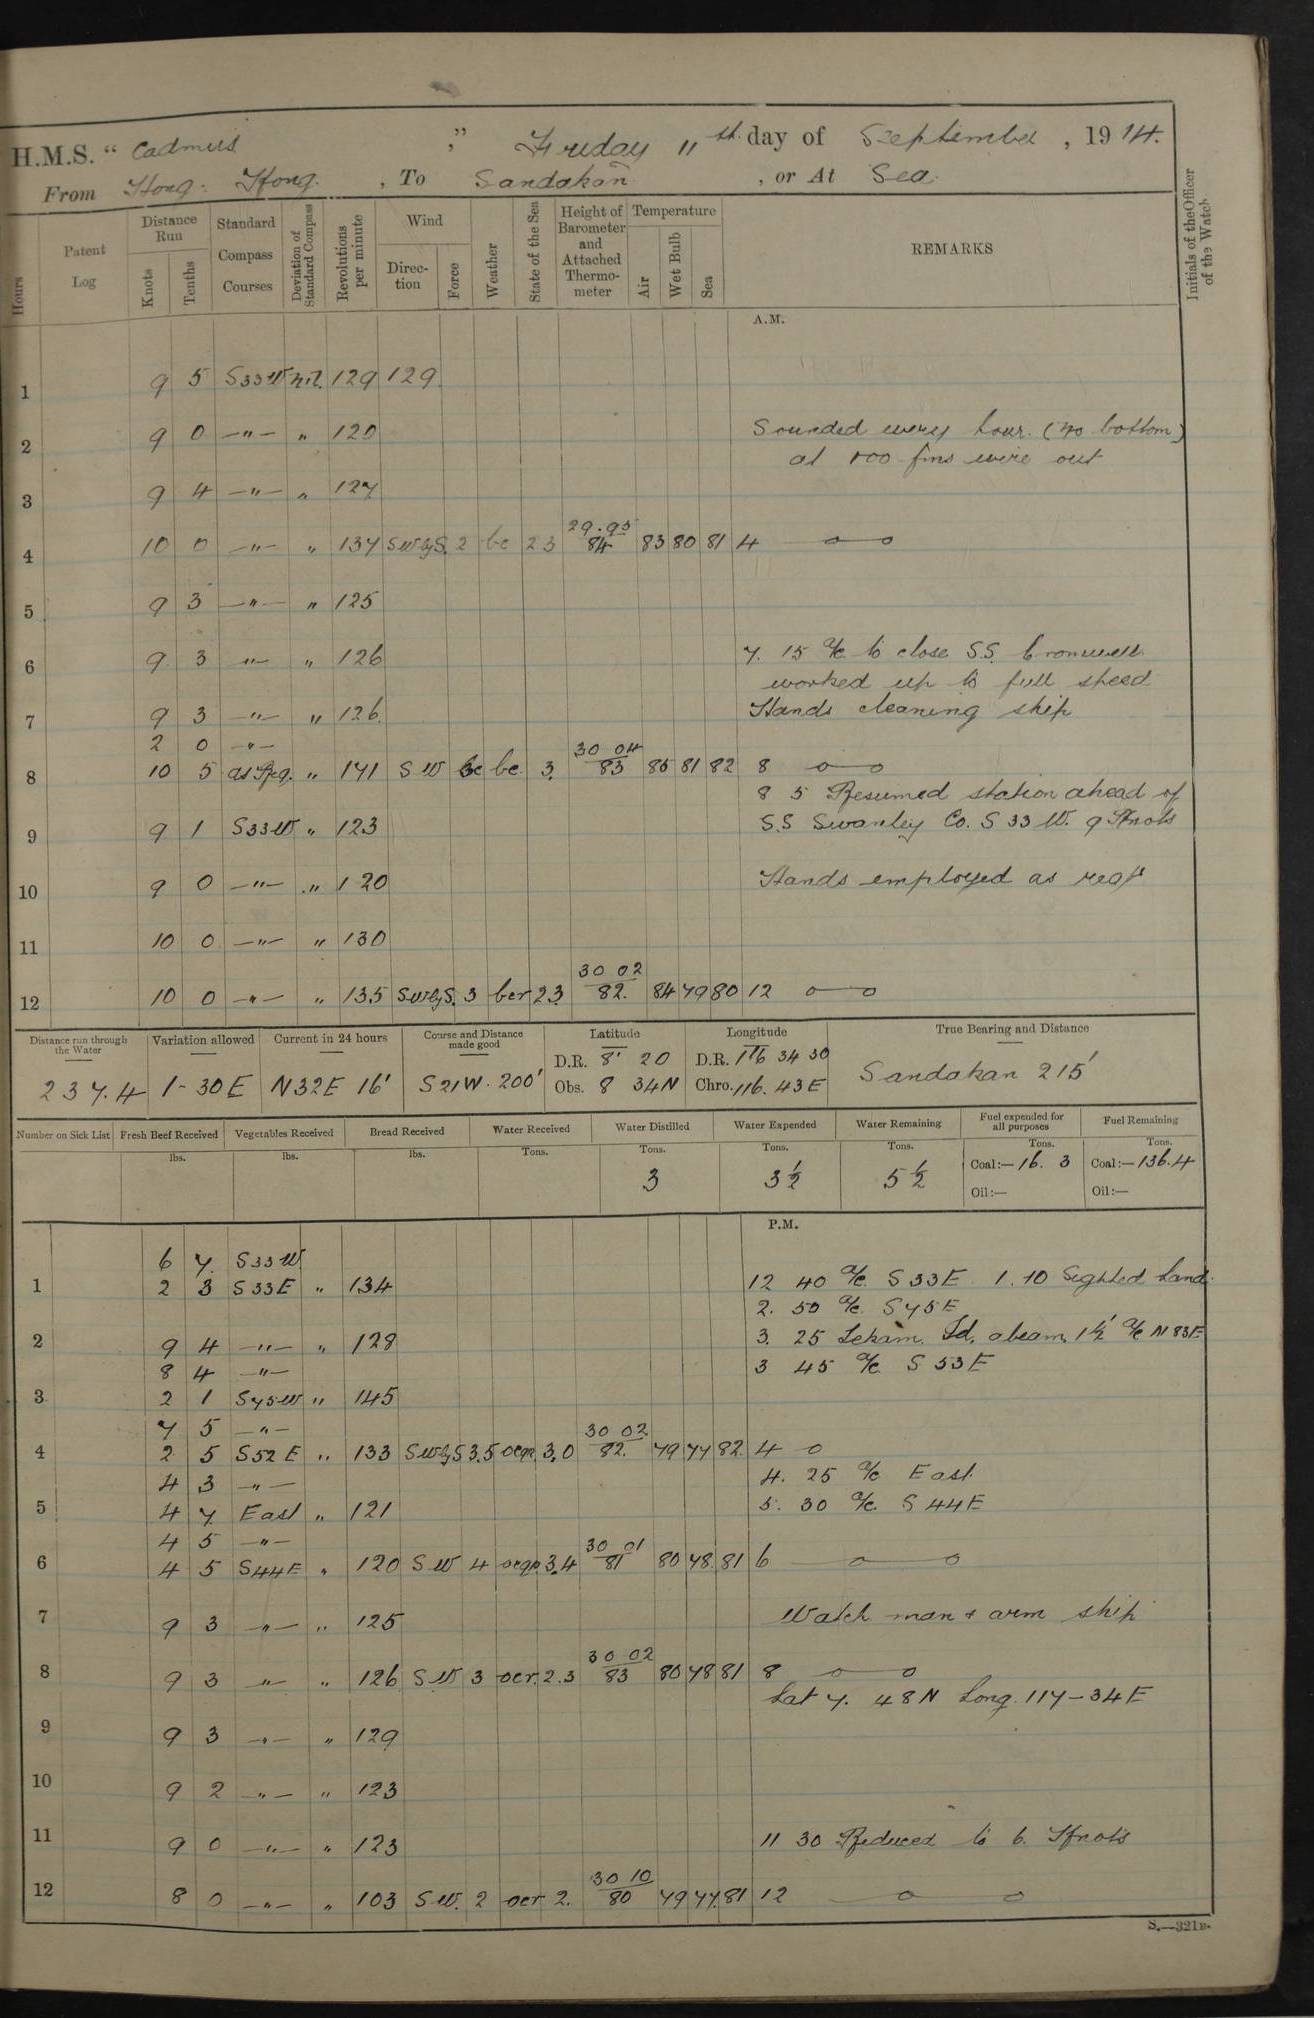 H.M.S. " Cadmus " , Friday 11th day of September , 1914.
From Hong Kong. , To Sandakan , or At Sea.
Hours
Patent Log
Distance Run
Knots
Tenths
Standard Compass Courses
Deviation of Standard Compass
Revolutions per minute
Wind
Direction
Force
Weather
State of the Sea
Height of Barometer and Attached Thermometer
Temperature
Air
Wet Bulb
Sea
REMARKS
Initials of the Officer of the Watch
A.M.
1 9 5 S33W nil. 129 129
2 9 0 —"— " 120 Sounded every hour. (no bottom)
at 100 fms wire out
3 9 4 —"— " 127
4 10 0 —"— " 137 SWbyS. 2 bc 23 29.95 84 83 80 81 4
5 9 3 —"— " 125
6 9 3 "— " 126 7. 15 a/c to close S.S. Cromwell
worked up to full speed
7 9 3 —"— " 126. Hands cleaning ship
2 0 —"—
8 10 5 as Req. " 141 SW bc 3. 30 04 83 85 81 82 8
8 5 Resumed station ahead of
9 9 1 S33W " 123 S.S Swanley Co. S 33 W. 9 Knots
10 9 0 —"— " 120 Hands employed as req.
11 10 0 —"— " 130
12 10 0 —"— " 135 SWbyS. 3 bcr 23 30 02 82. 84 79 80 12
Distance run through the Water
237.4
Variation allowed
1-30 E
Current in 24 hours
N32E 16'
Course and Distance made good
S21W. 200'
Latitude
D.R. 8° 20
Obs. 8 34N
Longitude
D.R. 116 34 30
Chro. 116. 43E
True Bearing and Distance
Sandakan 215'
Number on Sick List
Fresh Beef Received
lbs.
Vegetables Received
lbs.
Bread Received
lbs.
Water Received
Tons.
Water Distilled
Tons.
3
Water Expended
Tons.
3½
Water Remaining
Tons.
5½
Fuel expended for all purposes
Tons.
Coal:— 16. 3
Oil:—
Fuel Remaining
Tons.
Coal:— 136.4
Oil:—
P.M.
6 7. S33W
1 2 3 S33E " 134 12 40 a/c. S 33E. 1.10 Sighted land.
2. 50 a/c. S75E
2 9 4 —"— " 128 3. 25 Id. abeam 1½' a/c N83E
8 4 —"— 3 45 a/c. S 53E
3 2 1 S75W " 145
7 5 —"—
4 2 5 S52E " 133 SWbyS 3.5 ocqr 3.0 30 02 82. 79 77 82. 4
4 3 —"— 4. 25 a/c East.
5 4 7. East " 121 5. 30 a/c. S44E
4 5 —"—
6 4 5 S44E " 120 SW 4 ocqr 3.4 30 01 81 80 78. 81 6
7 9 3 —"— " 125 Watch man + arm ship
8 9 3 —"— " 126 SW 3 ocr. 2.3 30 02 83 80 78 81 8
Lat 7. 48N Long. 117-34E
9 9 3 —"— " 129
10 9 2 —"— " 123
11 9 0 —"— " 123 11 30 Reduced to 6. Knots
12 8 0 —"— " 103 SW. 2 ocr 2. 30 10 80 79 77. 81 12
S.—321B.